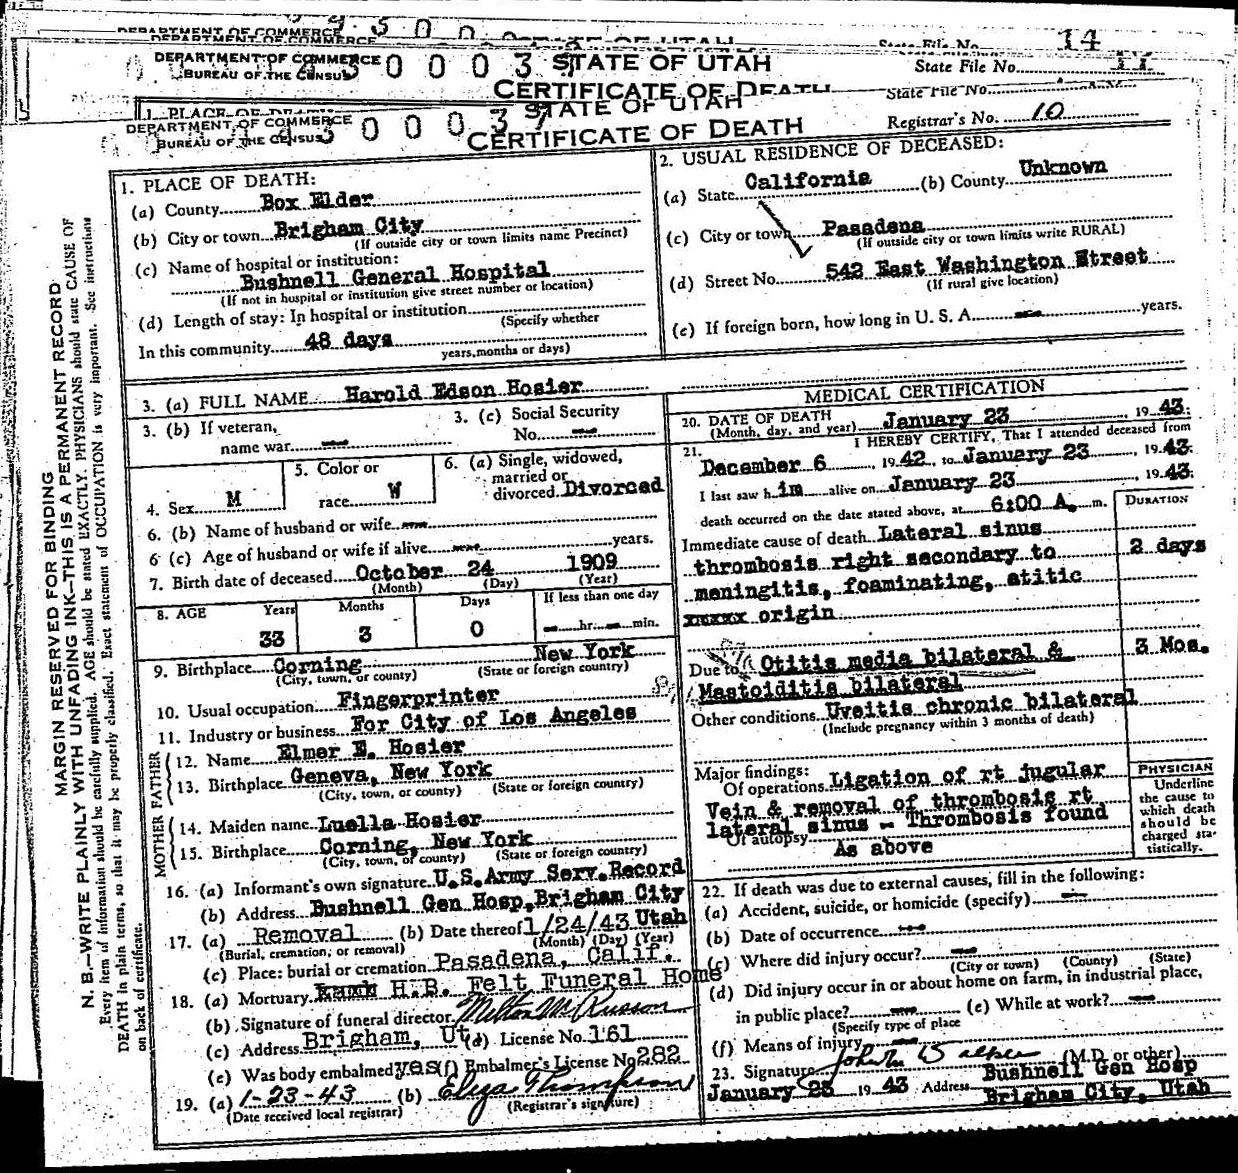 DEPARTMENT OF COMMERCE
DEPARTMENT OF COMMERCE
State File No. 14
DEPARTMENT OF COMMERCE 3 0 0 0 3 STATE OF UTAH
BUREAU OF THE CENSUS State File No.
CERTIFICATE OF DEATH State File No.
1. PLACE OF DEATH STATE OF UTAH
DEPARTMENT OF COMMERCE 3 0 0 0 3 7 CERTIFICATE OF DEATH Registrar's No. 10
BUREAU OF THE CENSUS
MARGIN RESERVED FOR BINDING
N. B.—WRITE PLAINLY WITH UNFADING INK—THIS IS A PERMANENT RECORD
Every item of information should be carefully supplied. AGE should be stated EXACTLY. PHYSICIANS should state CAUSE OF
DEATH in plain terms, so that it may be properly classified. Exact statement of OCCUPATION is very important. See instructions
on back of certificate.
1. PLACE OF DEATH:
(a) County Box Elder
(b) City or town Brigham City
(If outside city or town limits name Precinct)
(c) Name of hospital or institution:
Bushnell General Hospital
(If not in hospital or institution give street number or location)
(d) Length of stay: In hospital or institution
(Specify whether
In this community 48 days
years, months or days)
2. USUAL RESIDENCE OF DECEASED:
(a) State California (b) County Unknown
(c) City or town Pasadena
(If outside city or town limits write RURAL)
(d) Street No. 542 East Washington Street
(If rural give location)
(e) If foreign born, how long in U. S. A. -- years.
3. (a) FULL NAME Harold Edson Hosier
3. (b) If veteran, 3. (c) Social Security
name war -- No. --
4. Sex M 5. Color or race W 6. (a) Single, widowed, married or divorced Divorced
6. (b) Name of husband or wife --
6 (c) Age of husband or wife if alive -- years.
7. Birth date of deceased October 24 1909
(Month) (Day) (Year)
8. AGE Years Months Days If less than one day
33 3 0 -- hr. -- min.
9. Birthplace Corning New York
(City, town, or county) (State or foreign country)
10. Usual occupation Fingerprinter
11. Industry or business For City of Los Angeles
FATHER
12. Name Elmer E. Hosier
13. Birthplace Geneva, New York
(City, town, or county) (State or foreign country)
MOTHER
14. Maiden name Luella Hosier
15. Birthplace Corning, New York
(City, town, or county) (State or foreign country)
16. (a) Informant's own signature U.S.Army Serv.Record
(b) Address Bushnell Gen Hosp, Brigham City
17. (a) Removal (b) Date thereof 1/24/43 Utah
(Burial, cremation, or removal) (Month) (Day) (Year)
(c) Place: burial or cremation Pasadena, Calif.
18. (a) Mortuary H.B. Felt Funeral Home
(b) Signature of funeral director Milton McRusson
(c) Address Brigham, Ut (d) License No. 161
(e) Was body embalmed yes (f) Embalmer's License No 282
19. (a) 1-23-43 (b) Eliza Thompson
(Date received local registrar) (Registrar's signature)
MEDICAL CERTIFICATION
20. DATE OF DEATH January 23 19 43.
(Month, day, and year)
21. I HEREBY CERTIFY, That I attended deceased from
December 6, 19 42, to January 23, 19 43.
I last saw h im alive on January 23, 19 43.
death occurred on the date stated above, at 6:00 A. m. DURATION
Immediate cause of death Lateral sinus
thrombosis right secondary to 2 days
meningitis, foaminating, otitic
xxxxx origin
Due to Otitis media bilateral & 3 Mos.
Mastoiditis bilateral
Other conditions Uveitis chronic bilateral
(Include pregnancy within 3 months of death)
Major findings:
Of operations Ligation of rt jugular
Vein & removal of thrombosis rt
lateral sinus - Thrombosis found
Of autopsy As above
PHYSICIAN
Underline
the cause to
which death
should be
charged sta-
tistically.
22. If death was due to external causes, fill in the following:
(a) Accident, suicide, or homicide (specify) --
(b) Date of occurrence --
(c) Where did injury occur? --
(City or town) (County) (State)
(d) Did injury occur in or about home on farm, in industrial place,
in public place? -- (e) While at work? --
(Specify type of place
(f) Means of injury --
23. Signature John (M.D. or other)
January 23 19 43 Address Bushnell Gen Hosp
Brigham City, Utah